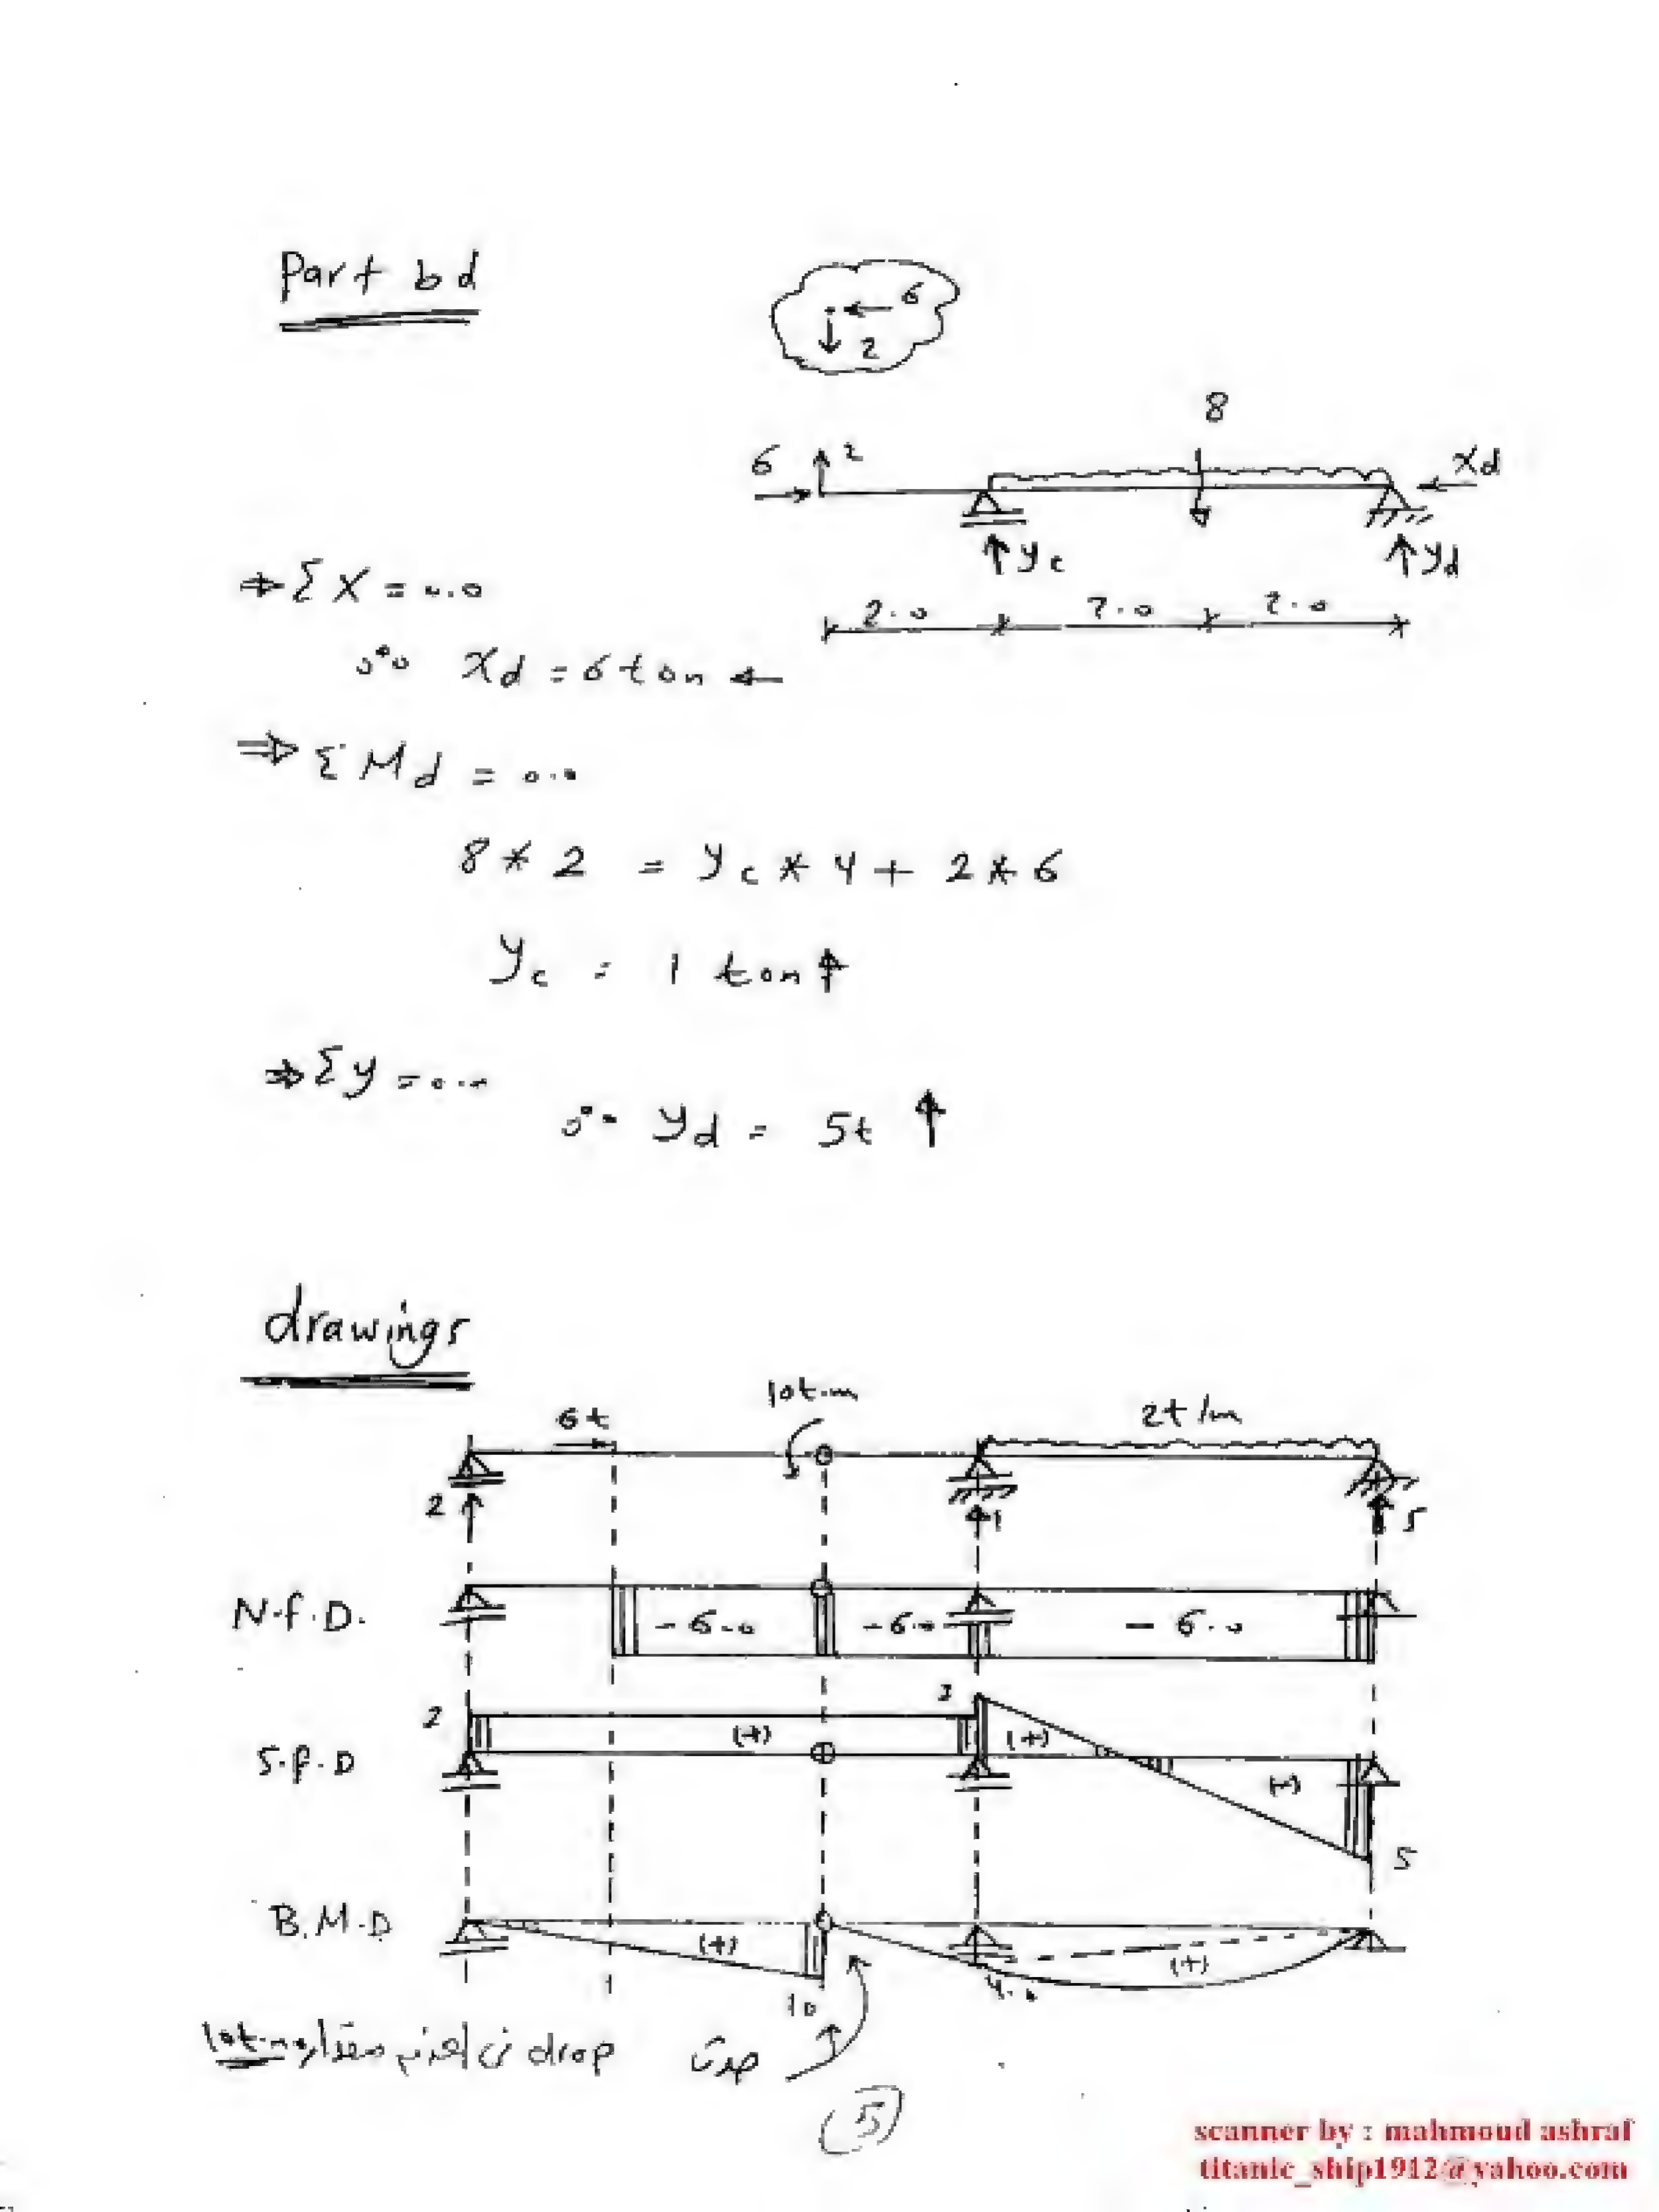 Part bd
6
2
8
6 2 xd
yc yd
2.0 2.0 2.0
⇒ Σ X = 0.0
∴ xd = 6 ton ←
⇒ Σ Md = 0.0
8 * 2 = yc * 4 + 2 * 6
yc = 1 ton ↑
⇒ Σ y = 0.0
∴ yd = 5t ↑
drawings
6t 10t.m 2t/m
2 1 5
N.f.D. -6.0 -6.0 - 6.0
2 3
S.f.D (+) (+) (-)
5
B.M.D (+) (+)
10 4.0
حدث drop فى العزم مقداره 10t.m
5
scanner by : mahmoud ashraf
titanic_ship1912@yahoo.com